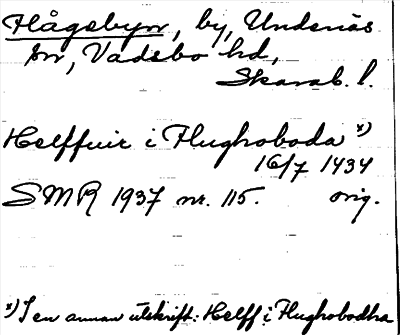 Hågebyn, by, Undenäs
sn, Vadsbo hd,
Skarab. l.
Helffuir i Hughoboda x)
16/7 1434
SMR 1937 nr. 115. orig.
x) I en annan utskrift: Helff i Hughobodha